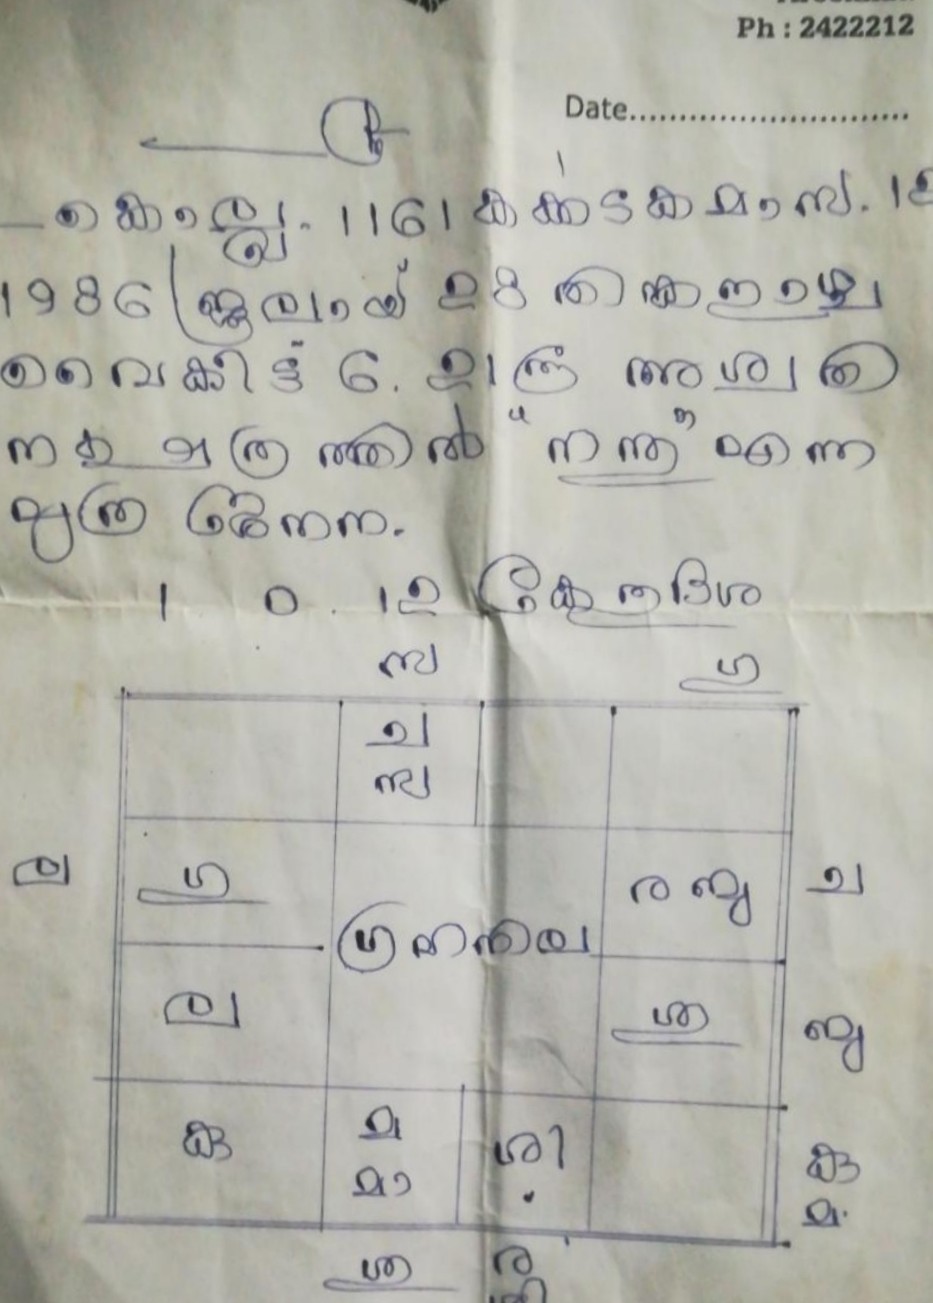 Ph : 2422212
Date............................
ശ്രീ
കൊല്ലം. 1161 കർക്കടകമാസം. 12
1986 ജൂലായ് 28 തിങ്കളാഴ്ച
വൈകിട്ട് 6. 21ന് അശ്വതി
നക്ഷത്രത്തിൽ "നന്ത" എന്ന
പുത്ര ജനന.
1 0. 12 കേതുദശ
സ ഗു
ച
സ
ല ഗു ര ബു ച
ഗ്രഹനില
ല ശു ബു
കു മ ശി കു
മാ മ.
ശു ര
ശി